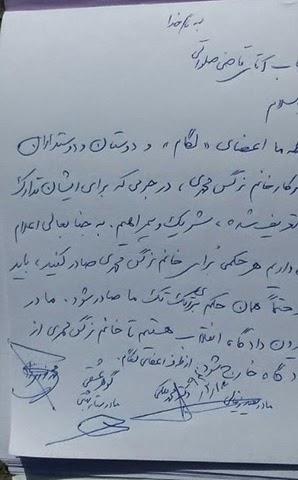 به نام خدا
جناب آقای قاضی صلواتی
سلام
ما اعضای «لگام» و دوستان و دوستداران
سرکار خانم نرگس محمدی، در جرمی که برای ایشان تدارک
تعریف شده، شریک و سهیم هستیم. به جنابعالی اعلام
می داریم هر حکمی برای خانم نرگس محمدی صادر کنید، باید
حتماً همان حکم برای تک تک ما صادر شود. ما در
بیرون دادگاه انقلاب هستیم تا خانم نرگس محمدی از
دادگاه خارج شود. از طرف اعضای لگام:
گوهر عشقی
مادر ستار بهشتی
محمد ملکی
مادر